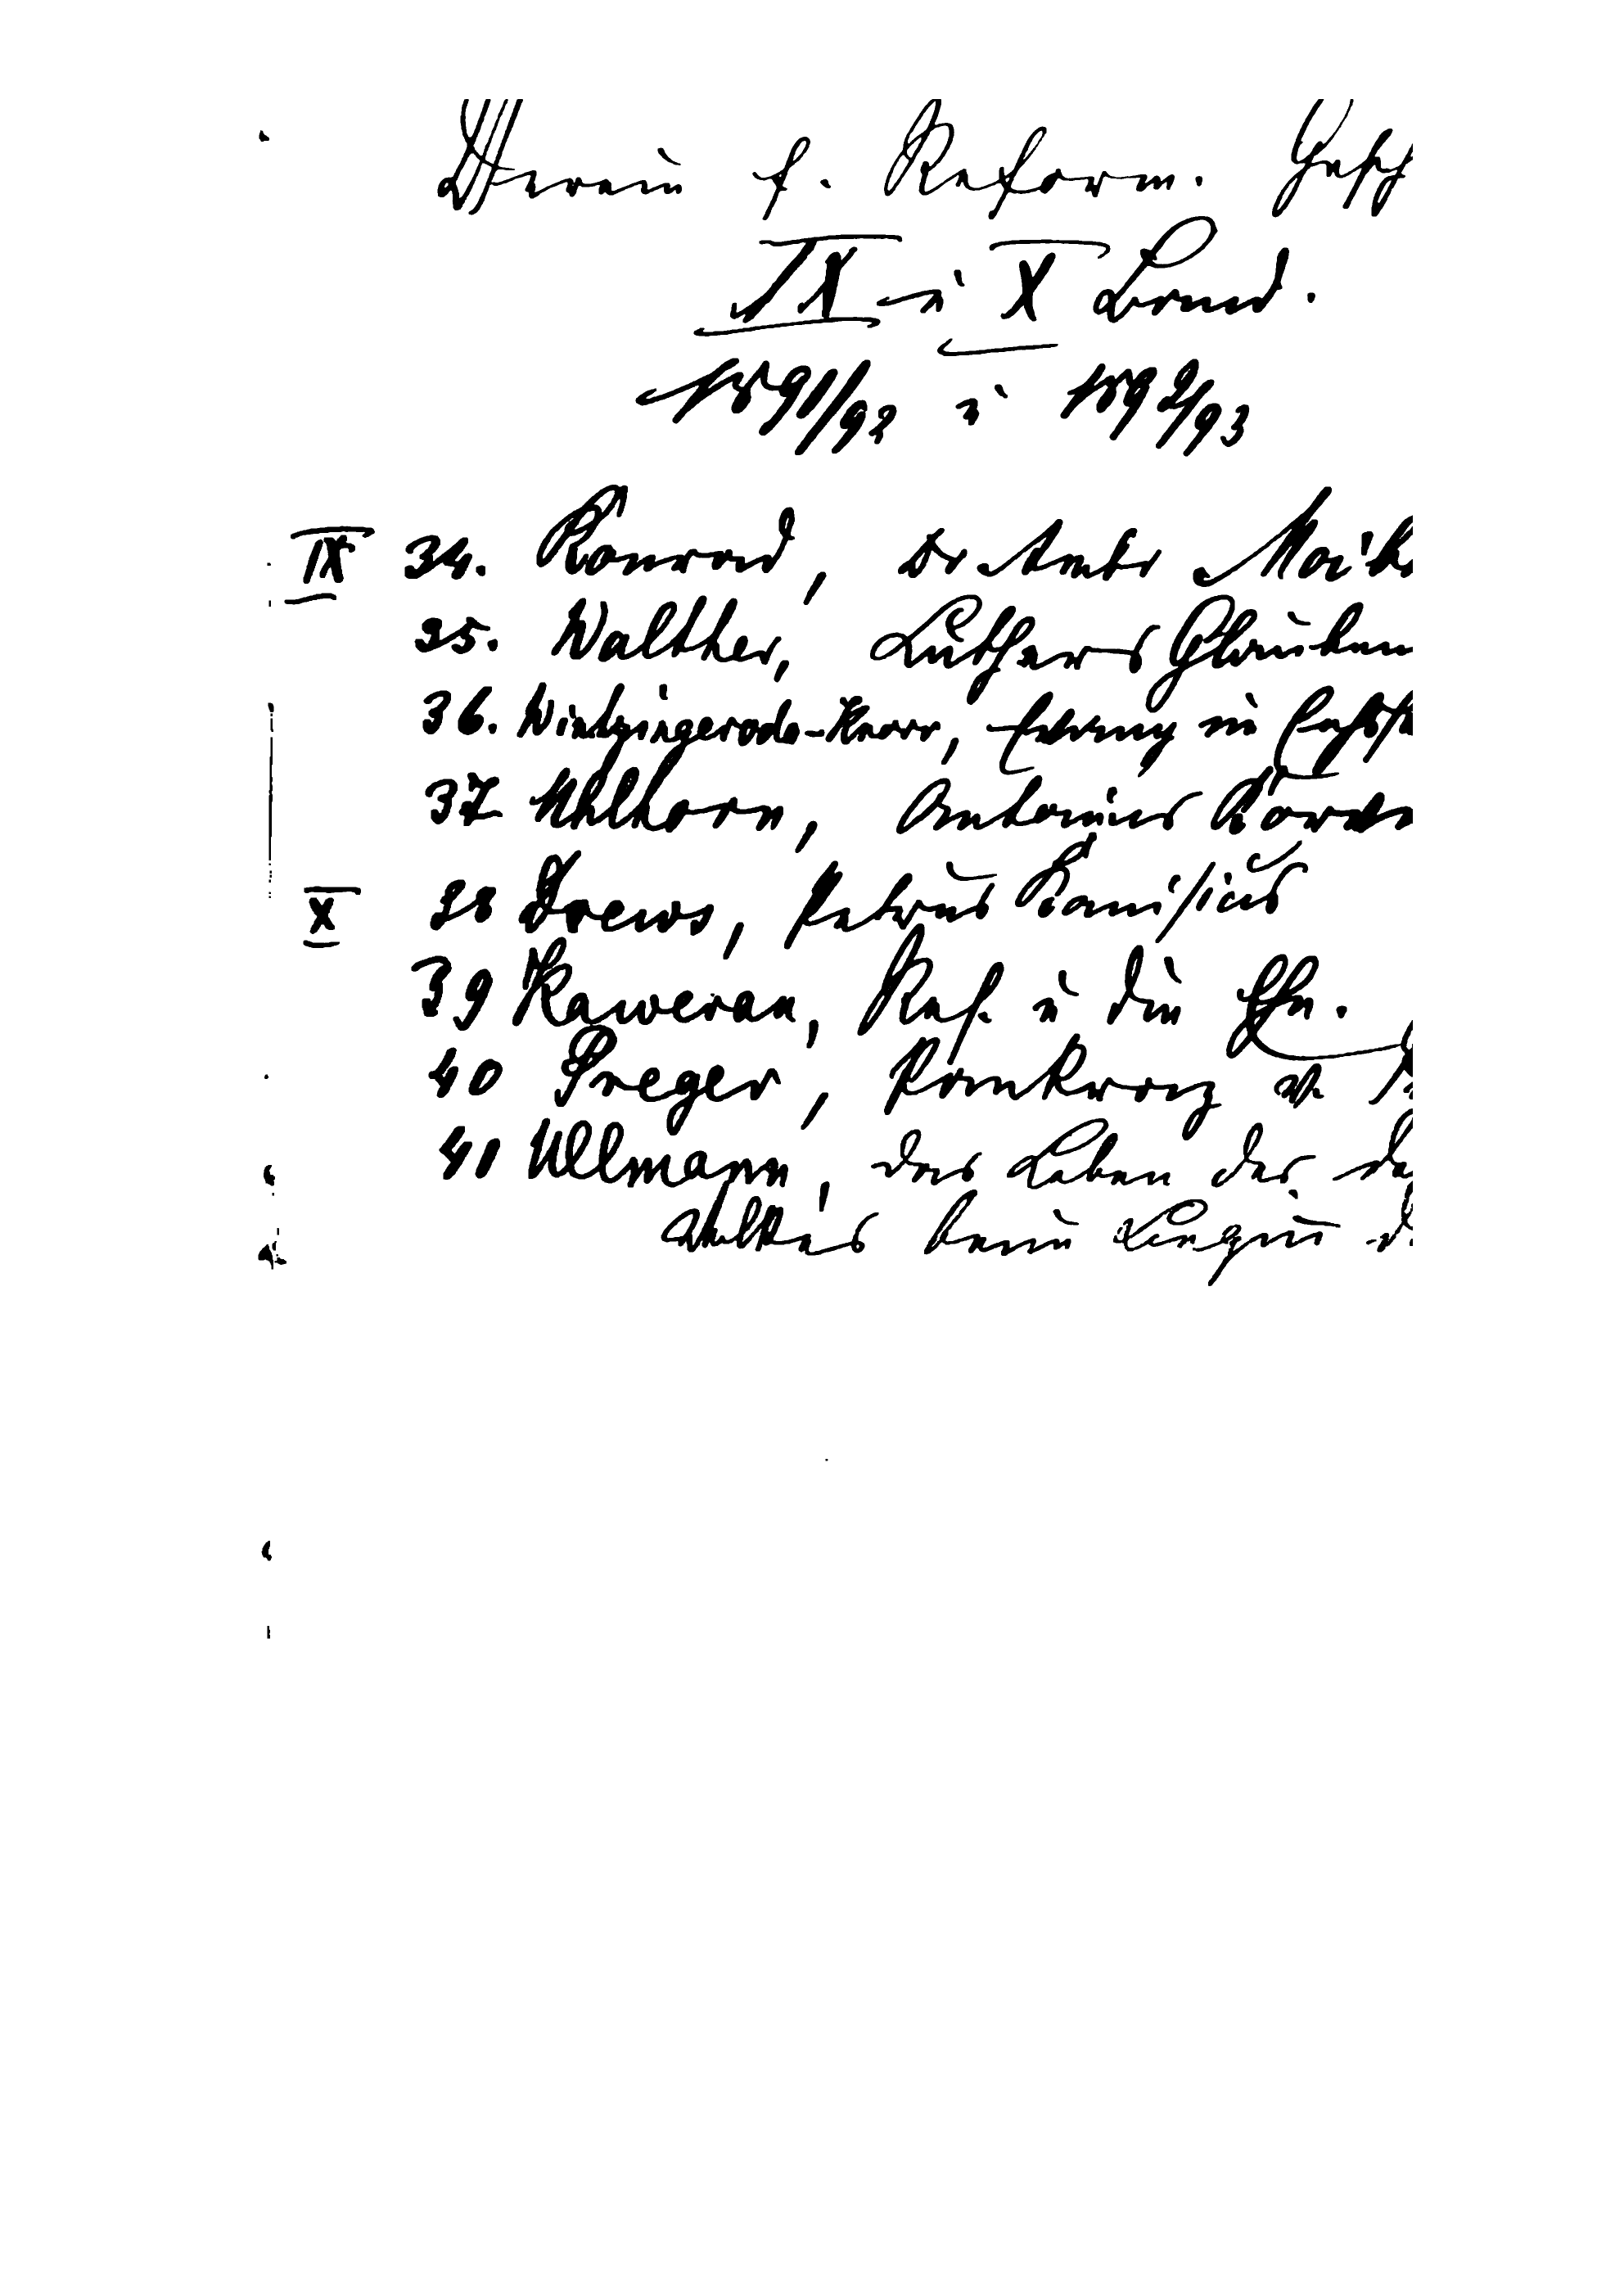 Verein f. Reform. Gesch
IX u X Band.
1891/92 u 1892/93
IX 34. Konrad, Dr Ambr Moib
35. Walther, Luthers Glauben
36. Wintzingeroda-Knorr, im Eichsf
37 Uhlhorn, Antonius Corv
X 38 Drews, Petrus Kanisius
39 Kawerau, Ref. u die Ehe.
40 Preger, Pankraz v.
41 Ullmann, das Leben des de
Volkes beim Beginn d.